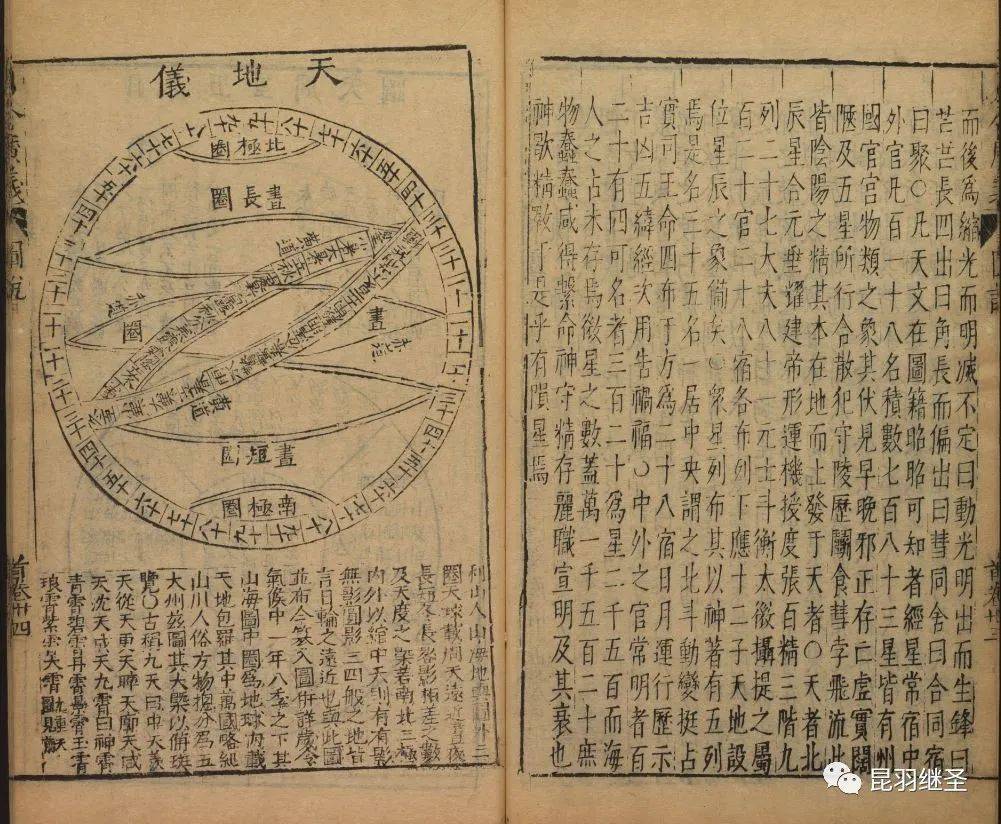 而後爲縮光而明滅不定曰動光明出而生鋒曰
芒芒長四出曰角長而偏出曰彗同舍曰合同宿
曰聚〇凡天文在圖籍昭昭可知者經星常宿中
外官凡百一十八名積數七百八十三星皆有州
國官宮物類之象其伏見早晚邪正存亡虛實闊
陿及五星所行合散犯守陵歷鬭食彗孛飛流此
皆陰陽之精其本在地而上發于天者〇天者北
辰星合元垂耀建帝形運機授度張百精三階九
列二十七大夫八十一元士斗衡太微攝提之屬
百二十官二十八宿各布列下應十二子天地設
位星辰之象備矣〇衆星列布其以神著有五列
焉是名三十五名一居中央謂之北斗動變挺占
實司王命四布于方爲二十八宿日月運行歷示
吉凶五緯經次用告禍福〇中外之官常明者百
二十有四可名者三百二十爲星二千五百而海
人之占未存焉微星之數蓋萬一千五百二十庶
物蠢蠢咸得繫命神守精存麗職宣明及其衰也
神歇精斁于是乎有隕星焉
天地儀
北極圈
晝長圈
黃道
赤道
晝
圈
赤道
黃道
晝短圈
南極圈
利山人山海地輿圖外三
圈天球載周天遠近晝夜
長短冬長影相差之數
及天度之槩若南北二極
內外以綰中天則有有影
無影圓影三四般之地皆
言日輪之遠近也茲此圖
並布合纂入圖併詳歲令
氣候中一年八季之下其
山海圖中圈爲地球海載
天地包羅其中萬國略紀
山川人俗方物揔分爲五
大州茲圖其大槩以備
覽〇古稱九天曰中天羨
天從天更天睟天廓天咸
天沈天成天九霄曰神霄
青霄碧霄丹霄景霄玉霄
琅霄紫霄太霄
首卷廿四
昆羽继圣